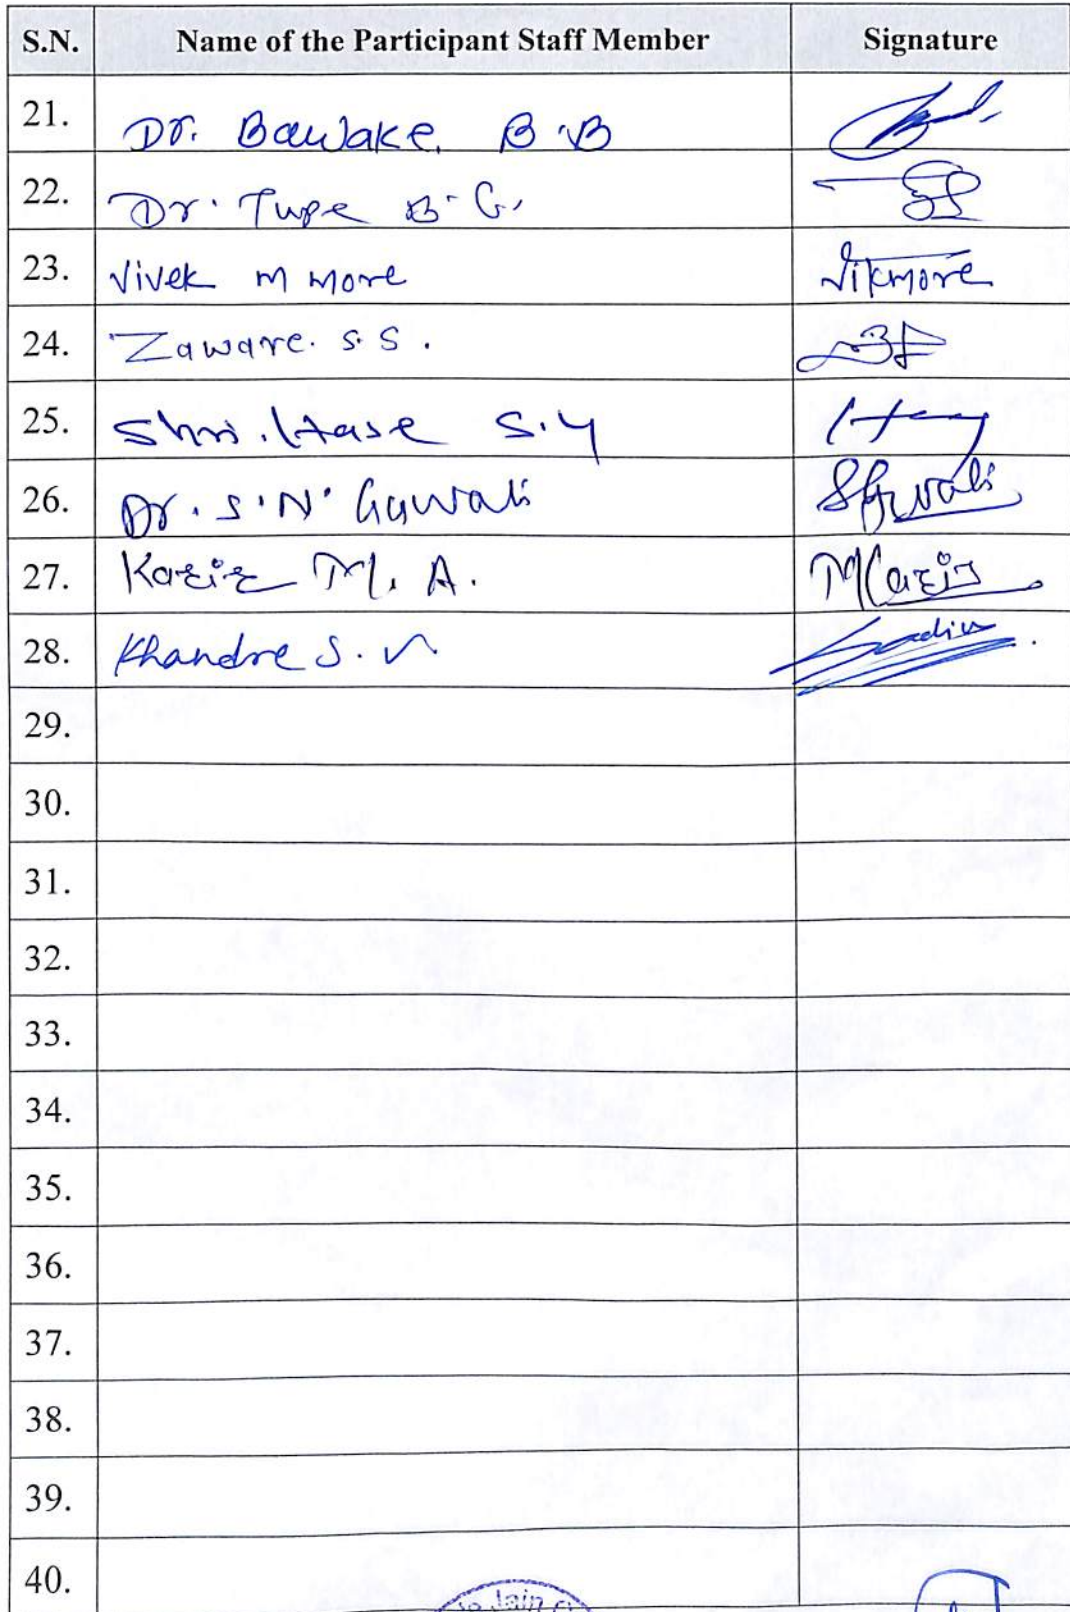 S.N. Name of the Participant Staff Member Signature
21. Dr. Bawake. B.B
22. Dr. Tupe B.G.
23. Vivek M More Vikmore
24. Zaware. S.S.
25. Shri. Hase S.Y
26. Dr. S.N. Gawali SGawali
27. Kaziz M. A. MKaziz
28. Khandre S. V
29.
30.
31.
32.
33.
34.
35.
36.
37.
38.
39.
40.
Jain